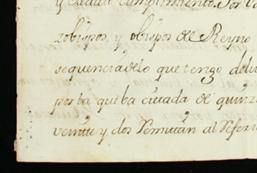 y ciudad cumplimiento. Por lo
zobispos, y obispos de Reyno
sequencia de lo que tengo deli
por la citada de quinze
veinte y dos Remitan al Refere